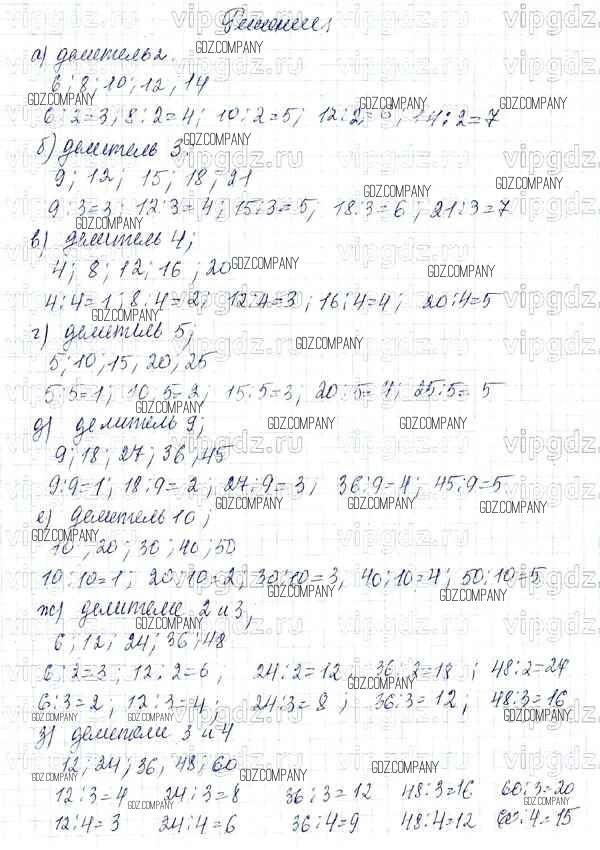 Решение:
а) делитель 2.
6; 8; 10; 12, 14
6:2=3; 8:2=4; 10:2=5; 12:2=6; 14:2=7
б) делитель 3.
9; 12; 15; 18; 21
9:3=3; 12:3=4; 15:3=5, 18:3=6; 21:3=7
в) делитель 4;
4; 8; 12; 16; 20
4:4=1; 8:4=2; 12:4=3; 16:4=4; 20:4=5
г) делитель 5;
5; 10; 15, 20, 25
5:5=1; 10:5=2; 15:5=3; 20:5=4; 25:5=5
д) делитель 9;
9; 18; 27; 36; 45
9:9=1; 18:9=2; 27:9=3; 36:9=4; 45:9=5
е) делитель 10;
10; 20; 30; 40; 50
10:10=1; 20:10=2; 30:10=3, 40:10=4; 50:10=5
ж) делители 2 и 3;
6; 12; 24; 36; 48
6:2=3; 12:2=6; 24:2=12 36:2=18; 48:2=24
6:3=2; 12:3=4; 24:3=8; 36:3=12; 48:3=16
з) делители 3 и 4
12; 24; 36, 48; 60
12:3=4 24:3=8 36:3=12 48:3=16 60:3=20
12:4=3 24:4=6 36:4=9 48:4=12 60:4=15
vipgdz.ru
GDZ.COMPANY